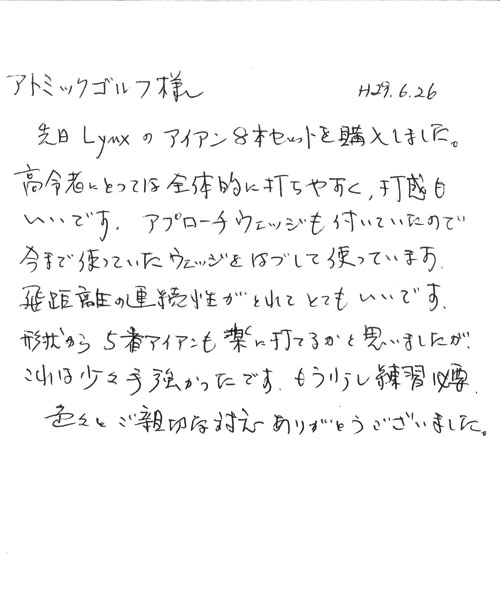 アトミックゴルフ様
H29.6.26
先日Lynxのアイアン8本セットを購入しました。
高令者にとっては全体的に打ちやすく,打感も
いいです. アプローチウェッジも付いていたので
今まで使っていたウェッジをはづして使っています.
飛距離の連続性がとれてとてもいいです.
形状から5番アイアンも楽に打てるかと思いましたが.
これは少々手強かったです. もう少し練習必要.
色々とご親切な対応ありがとうございました。